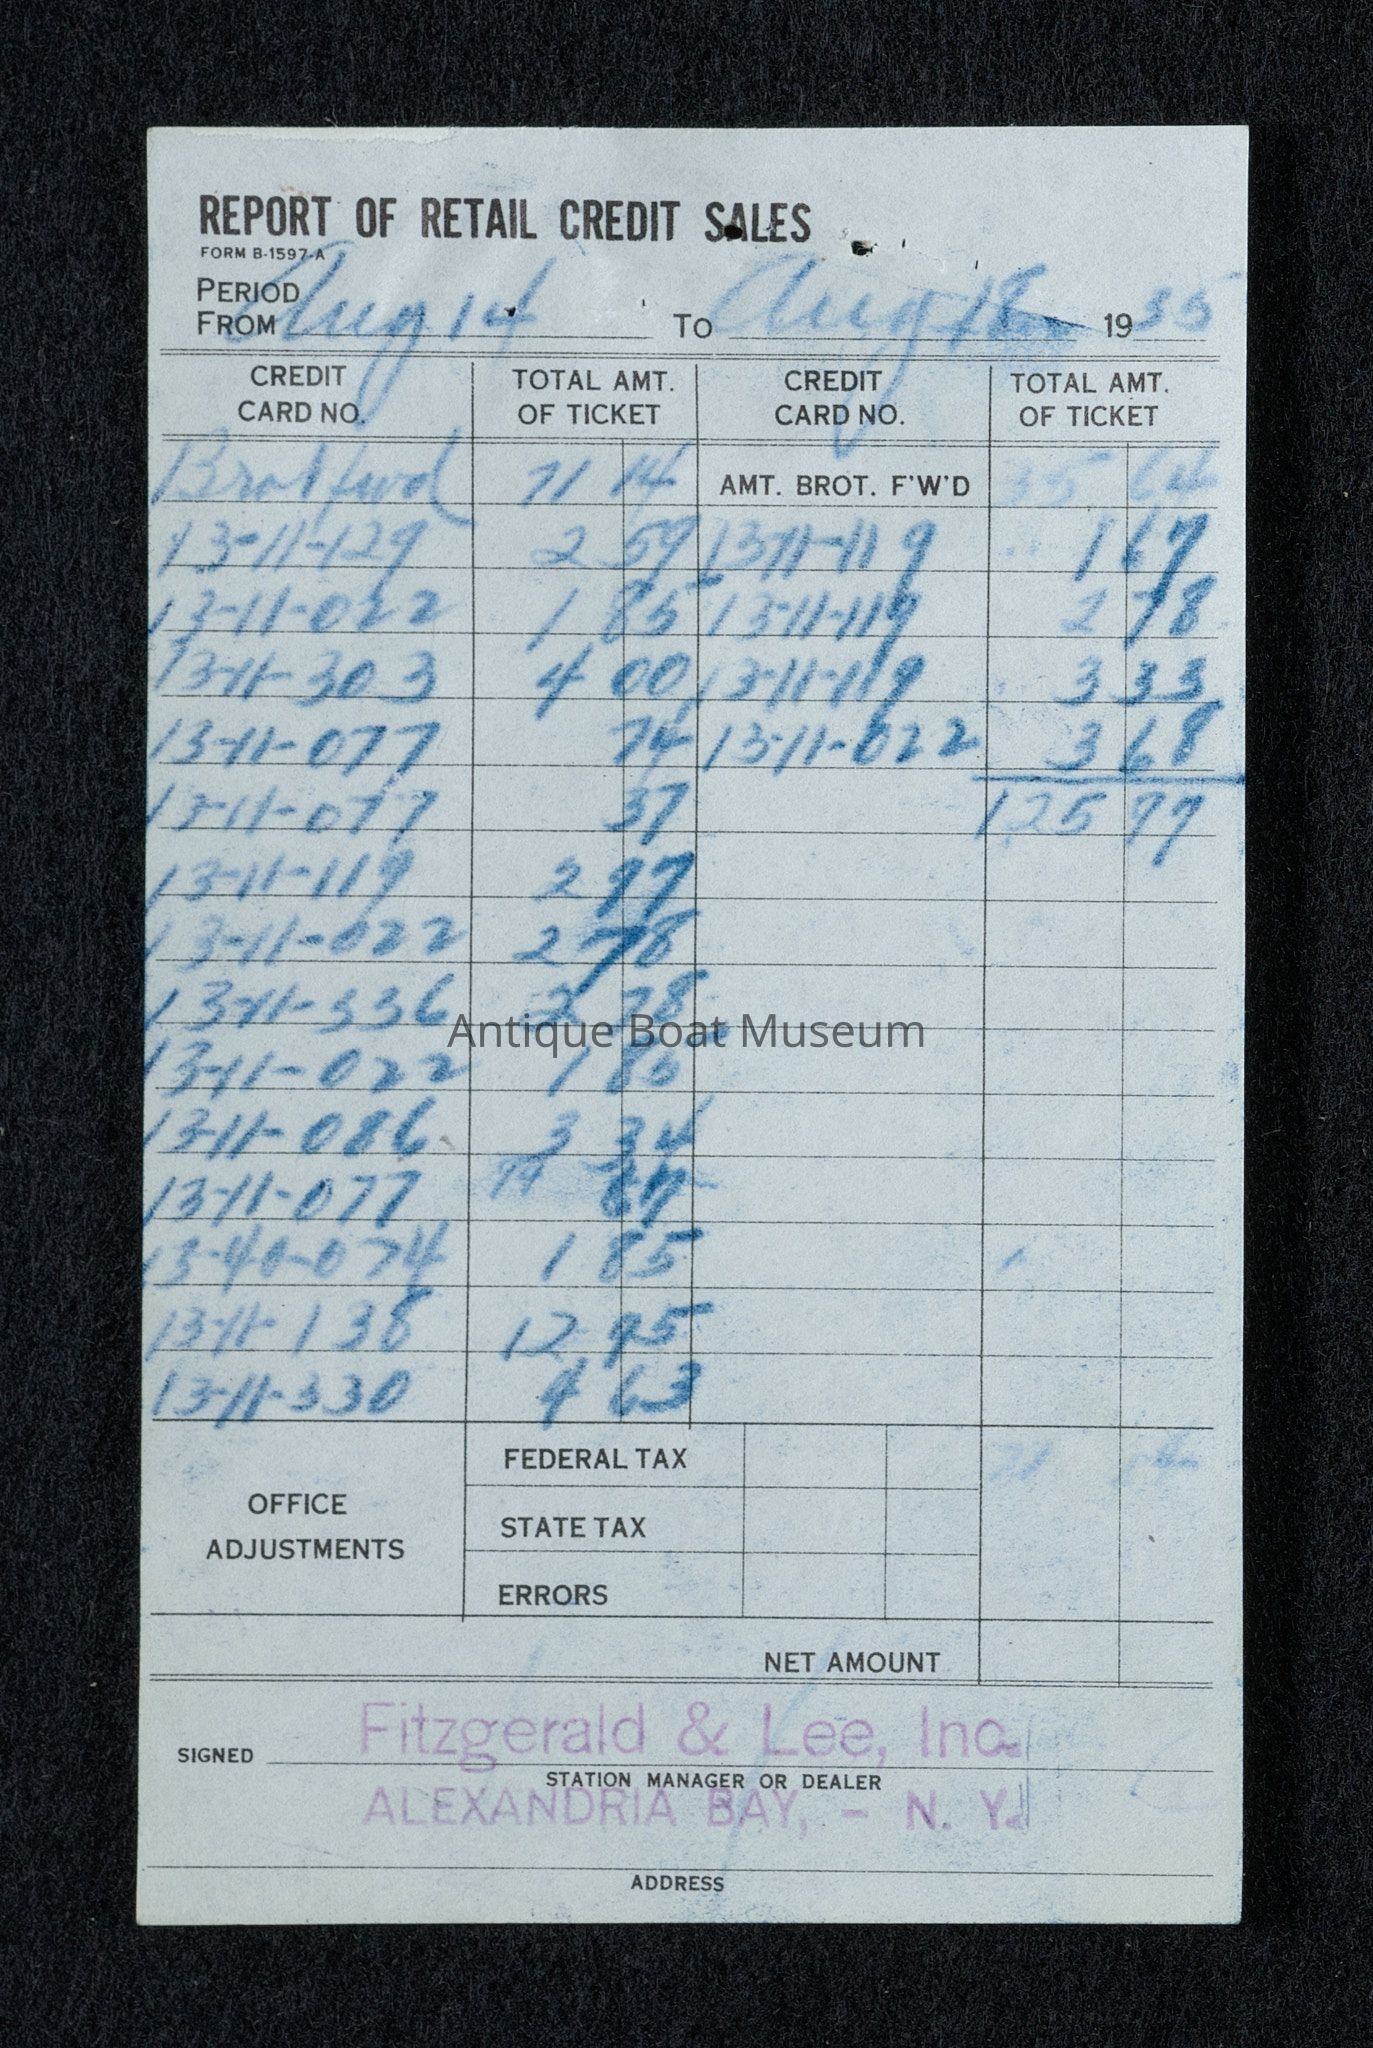 REPORT OF RETAIL CREDIT SALES
FORM B-1597-A
PERIOD
FROM Aug 14 TO Aug 18 1935
CREDIT CARD NO. TOTAL AMT. OF TICKET CREDIT CARD NO. TOTAL AMT. OF TICKET
71 14 AMT. BROT. F'W'D 35 64
13-11-129 2 59 13-11-119 1 67
13-11-022 1 85 13-11-119 2 78
13-11-303 4 00 13-11-119 3 33
13-11-077 74 13-11-022 3 68
13-11-077 37 125 77
13-11-119 2 97
13-11-022 2 78
13-11-336 2 78
13-11-022 1 85
13-11-086 3 34
13-11-077
13-40-074 1 85
13-11-138 12 95
13-11-330 4 63
OFFICE ADJUSTMENTS
FEDERAL TAX
STATE TAX
ERRORS
NET AMOUNT
Fitzgerald & Lee, Inc.
SIGNED
STATION MANAGER OR DEALER
ALEXANDRIA BAY, - N. Y.
ADDRESS
Antique Boat Museum